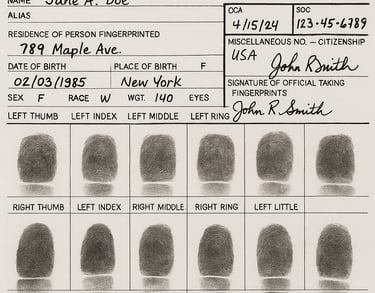 NAME Jane A. Doe
ALIAS
OCA
4/15/24
SOC
123-45-6789
RESIDENCE OF PERSON FINGERPRINTED
789 Maple Ave.
MISCELLANEOUS NO. — CITIZENSHIP
USA
John R Smith
DATE OF BIRTH
02/03/1985
PLACE OF BIRTH F
New York
SIGNATURE OF OFFICIAL TAKING
FINGERPRINTS
John R. Smith
SEX F RACE W WGT. 140 EYES
LEFT THUMB LEFT INDEX LEFT MIDDLE LEFT RING
RIGHT THUMB LEFT INDEX RIGHT MIDDLE RIGHT RING LEFT LITTLE